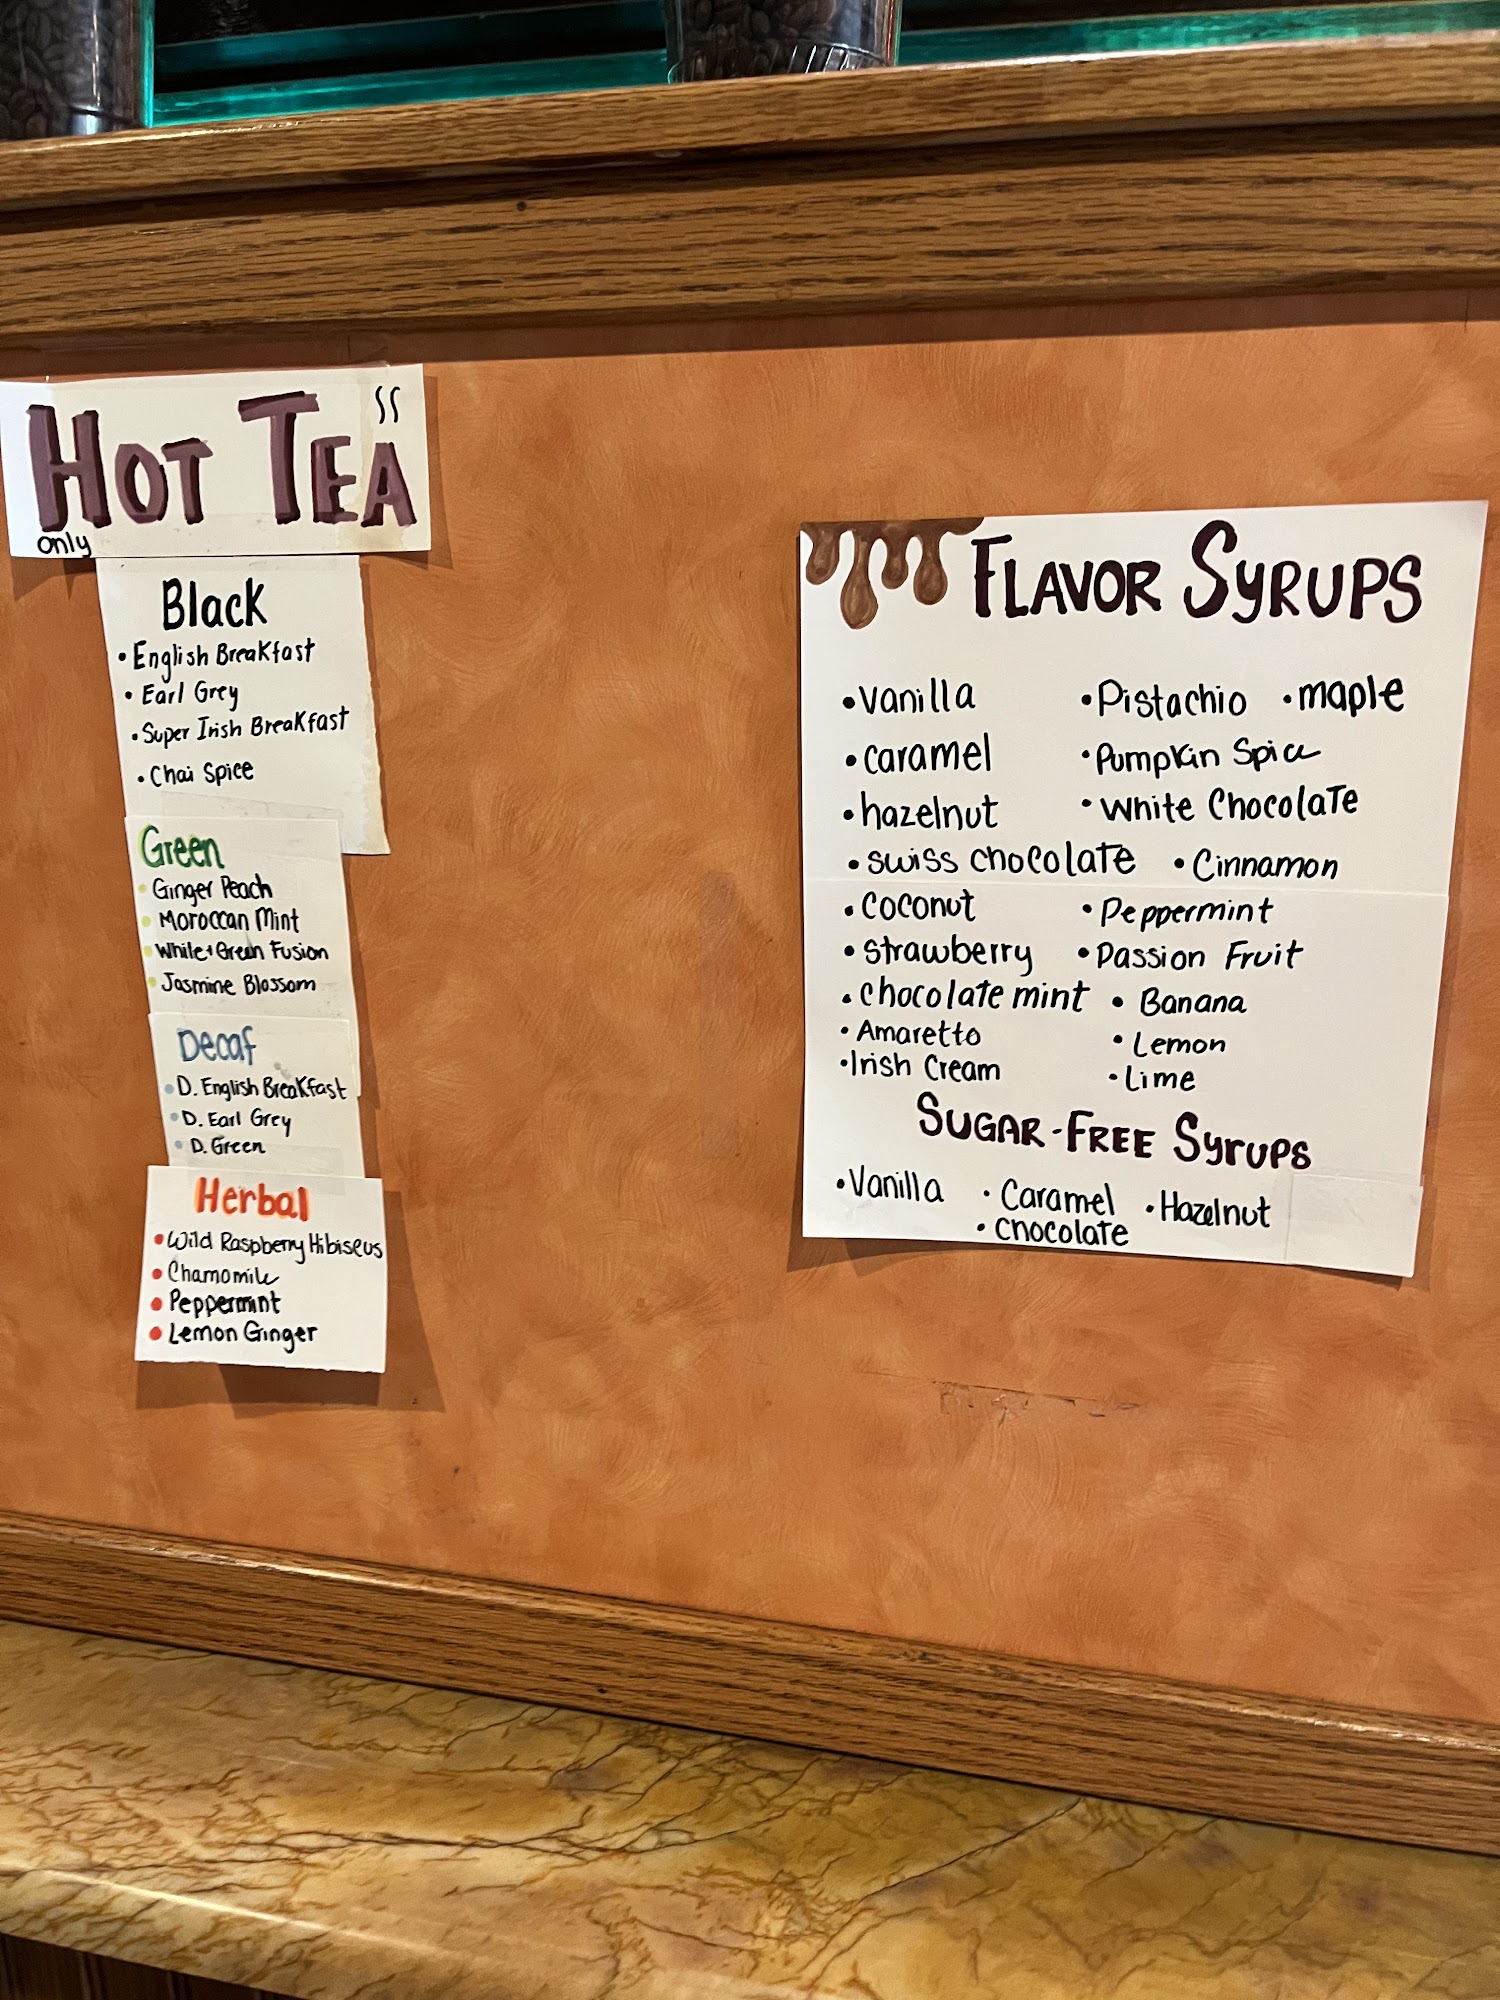 HOT TEA
only
Black
• English Breakfast
• Earl Grey
• Super Irish Breakfast
• Chai Spice
Green
• Ginger Peach
• Moroccan Mint
• White + Green Fusion
• Jasmine Blossom
Decaf
• D. English Breakfast
• D. Earl Grey
• D. Green
Herbal
• Wild Raspberry Hibiscus
• Chamomile
• Peppermint
• Lemon Ginger
FLAVOR SYRUPS
• Vanilla • Pistachio • maple
• caramel • Pumpkin Spice
• hazelnut • White Chocolate
• swiss chocolate • Cinnamon
• coconut • Peppermint
• strawberry • Passion Fruit
• chocolate mint • Banana
• Amaretto • Lemon
• Irish Cream • Lime
SUGAR-FREE SYRUPS
• Vanilla • Caramel • Hazelnut
• Chocolate